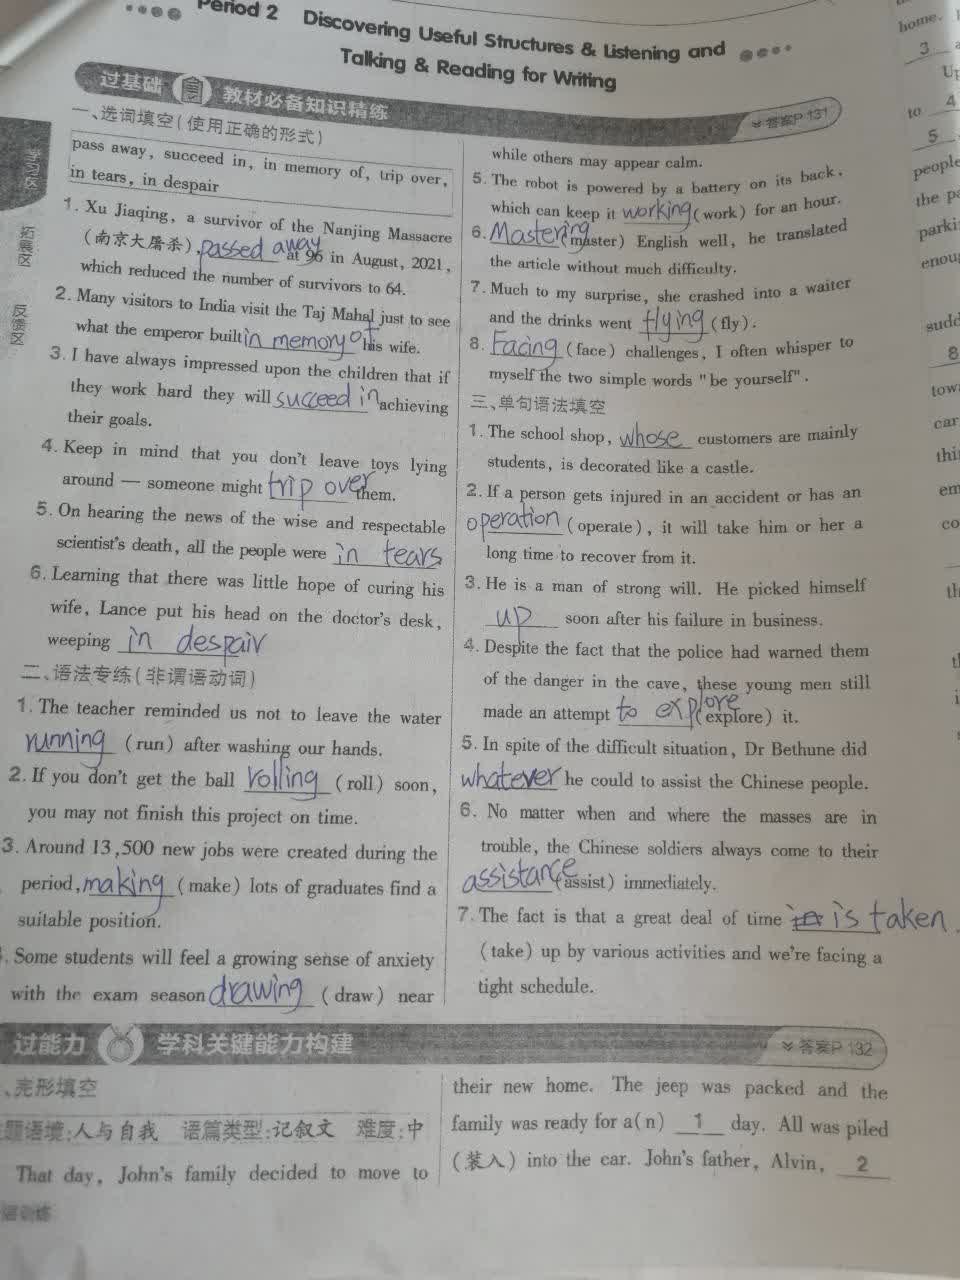 Period 2 Discovering Useful Structures & Listening and
Talking & Reading for Writing
过基础 教材必备知识精练 答案P 131
一、选词填空(使用正确的形式)
pass away, succeed in, in memory of, trip over,
in tears, in despair
1. Xu Jiaqing, a survivor of the Nanjing Massacre
(南京大屠杀), passed away at 96 in August, 2021,
which reduced the number of survivors to 64.
2. Many visitors to India visit the Taj Mahal just to see
what the emperor built in memory of his wife.
3. I have always impressed upon the children that if
they work hard they will succeed in achieving
their goals.
4. Keep in mind that you don't leave toys lying
around — someone might trip over them.
5. On hearing the news of the wise and respectable
scientist's death, all the people were in tears
6. Learning that there was little hope of curing his
wife, Lance put his head on the doctor's desk,
weeping in despair
二、语法专练(非谓语动词)
1. The teacher reminded us not to leave the water
running (run) after washing our hands.
2. If you don't get the ball rolling (roll) soon,
you may not finish this project on time.
3. Around 13,500 new jobs were created during the
period, making (make) lots of graduates find a
suitable position.
. Some students will feel a growing sense of anxiety
with the exam season drawing (draw) near
while others may appear calm.
5. The robot is powered by a battery on its back,
which can keep it working (work) for an hour.
6. Mastering (master) English well, he translated
the article without much difficulty.
7. Much to my surprise, she crashed into a waiter
and the drinks went flying (fly).
8. Facing (face) challenges, I often whisper to
myself the two simple words "be yourself".
三、单句语法填空
1. The school shop, whose customers are mainly
students, is decorated like a castle.
2. If a person gets injured in an accident or has an
operation (operate), it will take him or her a
long time to recover from it.
3. He is a man of strong will. He picked himself
up soon after his failure in business.
4. Despite the fact that the police had warned them
of the danger in the cave, these young men still
made an attempt to explore (explore) it.
5. In spite of the difficult situation, Dr Bethune did
whatever he could to assist the Chinese people.
6. No matter when and where the masses are in
trouble, the Chinese soldiers always come to their
assistance (assist) immediately.
7. The fact is that a great deal of time is taken
(take) up by various activities and we're facing a
tight schedule.
过能力 学科关键能力构建 答案P 132
、完形填空
题语境:人与自我 语篇类型:记叙文 难度:中
That day, John's family decided to move to
their new home. The jeep was packed and the
family was ready for a(n) 1 day. All was piled
(装入) into the car. John's father, Alvin, 2
学习区
拓展区
反馈区
home.
3
Up
to 4
5
people
the pa
parki
enoug
sudd
8
tow
car
thi
em
co
th